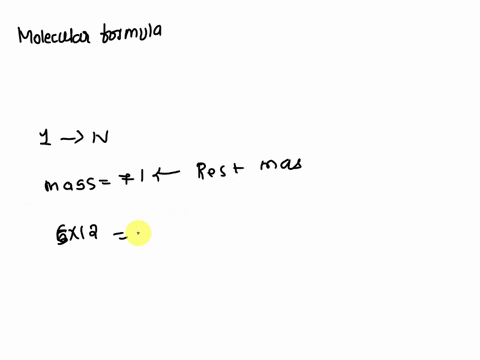 Molecular formula
1 → N
mass = 71 ← Rest mas
6x12 =